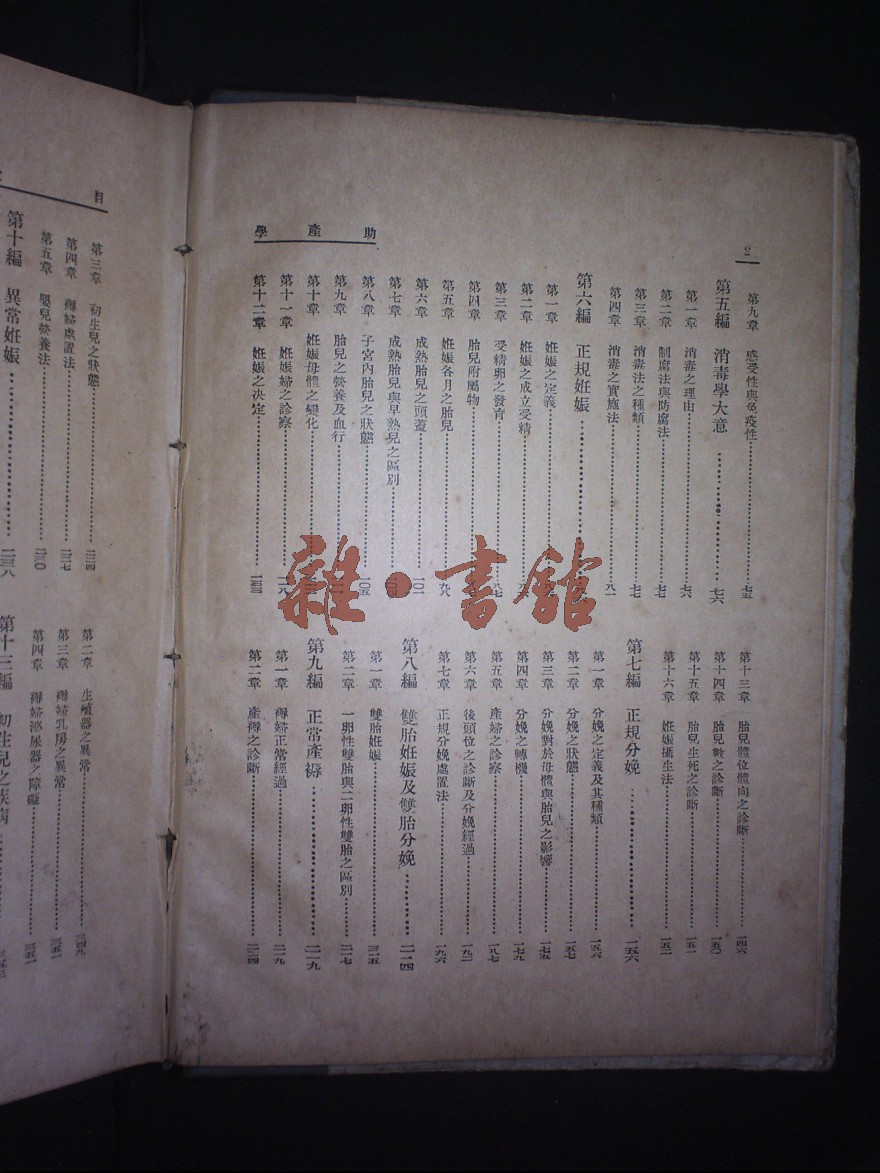 2
助產學
第九章 感受性與免疫性 七五
第五編 消毒學大意 七六
第一章 消毒之理由 七六
第二章 制腐法與防腐法 七七
第三章 消毒法之種類 七七
第四章 消毒之實施法 八一
第六編 正規妊娠
第一章 妊娠之定義
第二章 妊娠之成立受精
第三章 受精卵之發育 八七
第四章 胎兒附屬物
第五章 妊娠各月之胎兒 九八
第六章 成熟胎兒之頭蓋 一〇一
第七章 成熟胎兒與早熟兒之區別
第八章 子宮內胎兒之狀態 一〇五
第九章 胎兒之營養及血行
第十章 妊娠母體之變化
第十一章 妊娠婦之診察 一一八
第十二章 妊娠之決定
第十三章 胎兒體位體向之診斷 一四六
第十四章 胎兒數之診斷 一五〇
第十五章 胎兒生死之診斷 一五一
第十六章 妊娠攝生法 一五二
第七編 正規分娩 一五六
第一章 分娩之定義及其種類 一五六
第二章 分娩之狀態 一五七
第三章 分娩對於母體與胎兒之影響 一七五
第四章 分娩之轉機 一七九
第五章 產婦之診察 一八七
第六章 後頭位之診斷及分娩經過 一九二
第七章 正規分娩處置法 一九六
第八編 雙胎妊娠及雙胎分娩 二一四
第一章 雙胎妊娠 二一五
第二章 一卵性雙胎與二卵性雙胎之區別 二一七
第九編 正常產褥 二一九
第一章 褥婦正常經過 二一九
第二章 產褥之診斷 二二四
目
第三章 初生兒之狀態 二二四
第四章 褥婦處置法 二二七
第五章 嬰兒營養法 二三〇
第十編 異常妊娠 二三八
第二章 生殖器之異常 三四九
第三章 褥婦乳房之異常 三五一
第四章 褥婦泌尿器之障礙 三五二
第十三編 初生兒之疾病
雜·書館